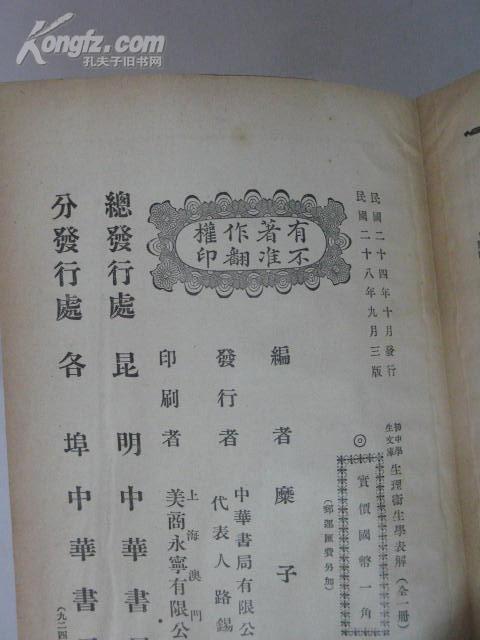 Kongfz.com
孔夫子旧书网
民國二十四年十月發行
民國二十八年九月三版
初中學生文庫
生理衛生學表解(全一冊)
◎實價國幣一角
(郵運匯費另加)
有著作權
不准翻印
編者 糜子
發行者 中華書局有限公
代表人路錫
印刷者 上海澳門
美商永寧有限公
總發行處 昆明中華書
分發行處 各埠中華書
(九二四